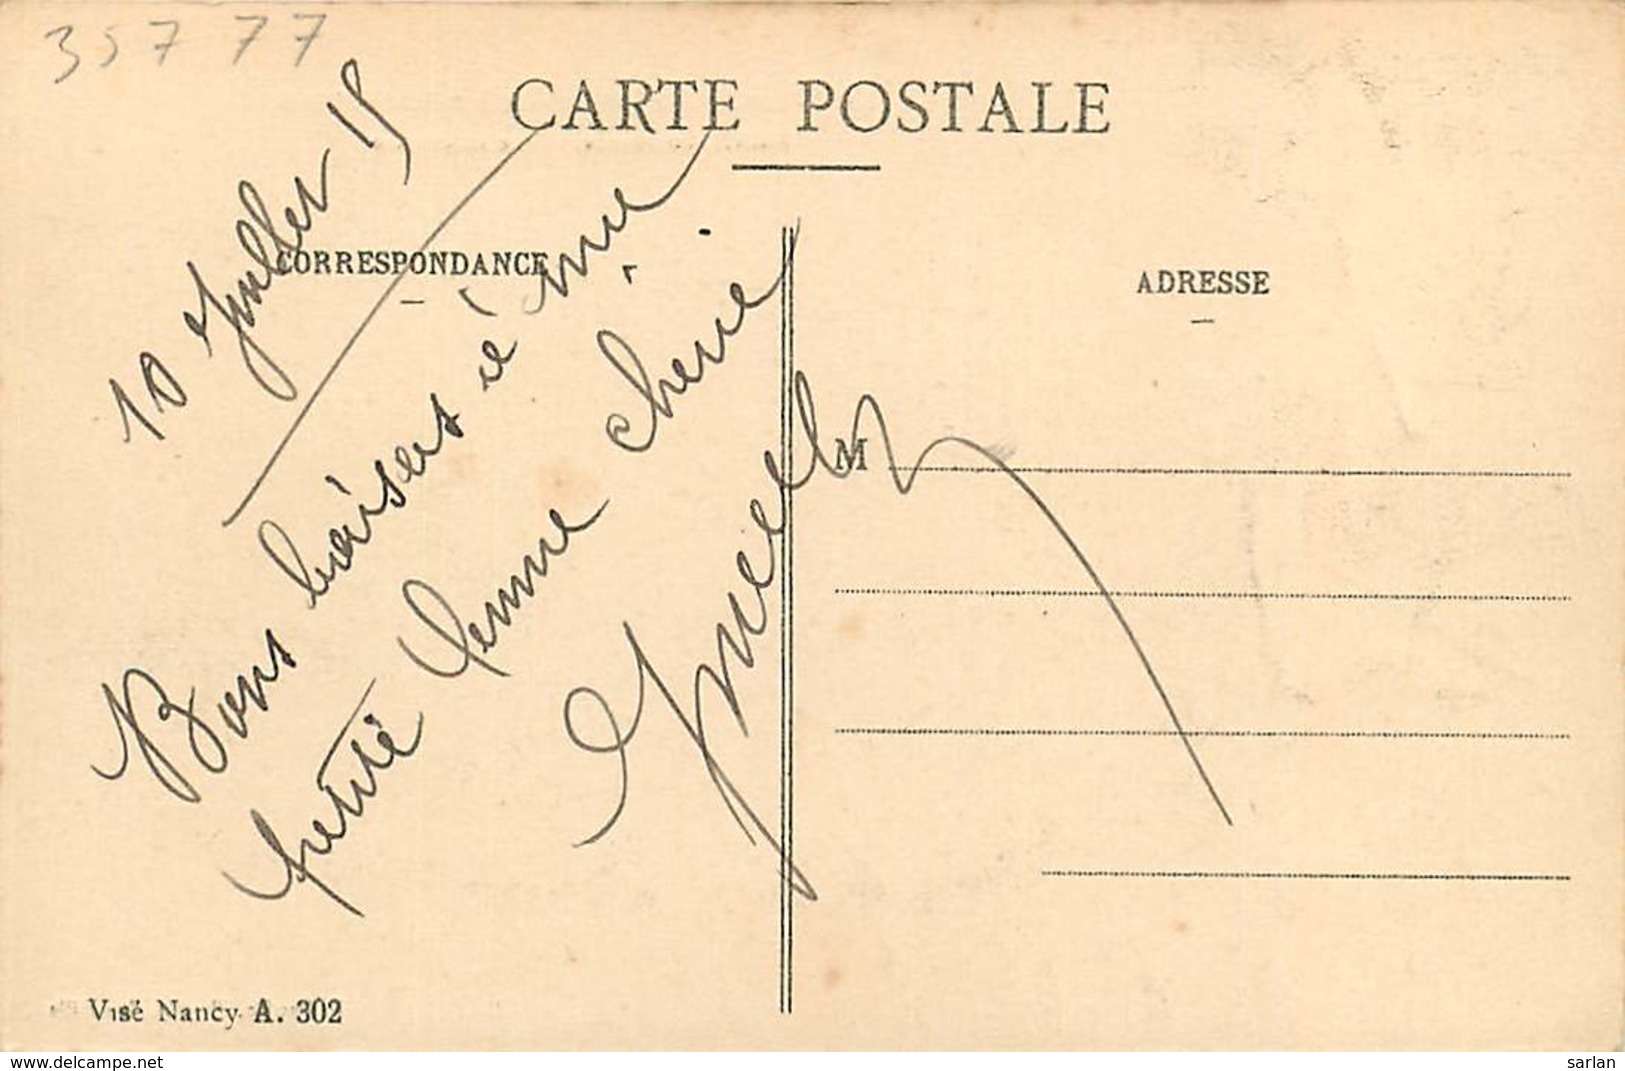 35777
CARTE POSTALE
10 Juillet 15
CORRESPONDANCE
ADRESSE
Bons baisers à ma
petite femme cherie
M
Visé Nancy A. 302
www.delcampe.net
sarlan